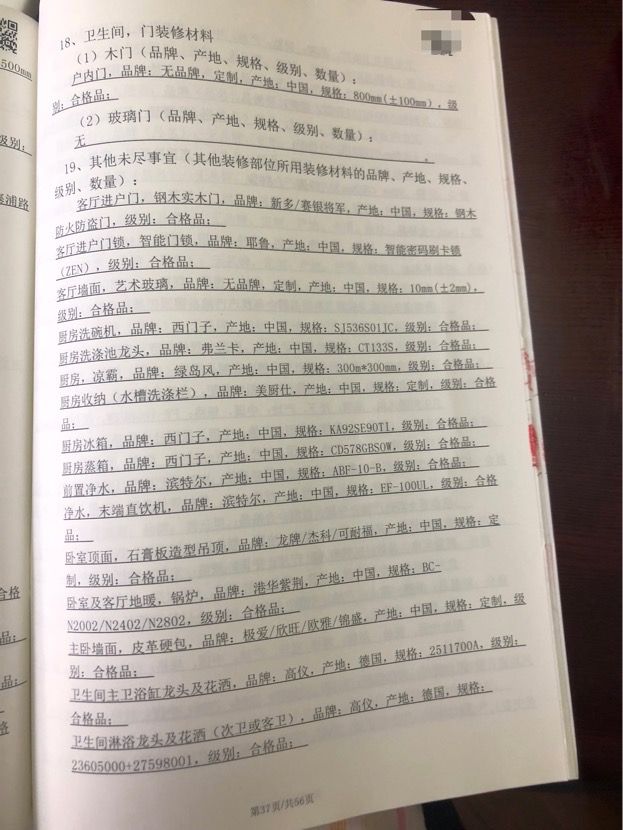 500mm
级别:
塞浦路
合格
品;
品;
格
18、卫生间，门装修材料
（1）木门（品牌、产地、规格、级别、数量）:
户内门，品牌: 无品牌，定制，产地: 中国，规格: 800mm(±100mm)，级
别: 合格品;
（2）玻璃门（品牌、产地、规格、级别、数量）:
无。
19、其他未尽事宜（其他装修部位所用装修材料的品牌、产地、规格、
级别、数量）:
客厅进户门，钢木实木门，品牌: 新多/赛银将军，产地: 中国，规格: 钢木
防火防盗门，级别: 合格品;
客厅进户门锁，智能门锁，品牌: 耶鲁，产地: 中国，规格: 智能密码刷卡锁
（ZEN），级别: 合格品;
客厅墙面，艺术玻璃，品牌: 无品牌，定制，产地: 中国，规格: 10mm(±2mm)，
级别: 合格品;
厨房洗碗机，品牌: 西门子，产地: 中国，规格: SJ536S01JC，级别: 合格品;
厨房洗涤池龙头，品牌: 弗兰卡，产地: 中国，规格: CT133S，级别: 合格品;
厨房，凉霸，品牌: 绿岛风，产地: 中国，规格: 300m*300mm，级别: 合格品;
厨房收纳（水槽洗涤栏），品牌: 美厨仕，产地: 中国，规格: 定制，级别: 合格
品;
厨房冰箱，品牌: 西门子，产地: 中国，规格: KA92SE90TI，级别: 合格品;
厨房蒸箱，品牌: 西门子，产地: 中国，规格: CD578GBS0W，级别: 合格品;
前置净水，品牌: 滨特尔，产地: 中国，规格: ABF-10-B，级别: 合格品;
净水，末端直饮机，品牌: 滨特尔，产地: 中国，规格: EF-100UL，级别: 合格
品;
卧室顶面，石膏板造型吊顶，品牌: 龙牌/杰科/可耐福，产地: 中国，规格: 定
制，级别: 合格品;
卧室及客厅地暖，锅炉，品牌: 港华紫荆，产地: 中国，规格: BC-
N2002/N2402/N2802，级别: 合格品;
主卧墙面，皮革硬包，品牌: 极爱/欣旺/欧雅/锦盛，产地: 中国，规格: 定制，级
别: 合格品;
卫生间主卫浴缸龙头及花洒，品牌: 高仪，产地: 德国，规格: 2511700A，级别:
合格品;
卫生间淋浴龙头及花洒（次卫或客卫），品牌: 高仪，产地: 德国，规格:
23605000+27598001，级别: 合格品;
第37页/共56页